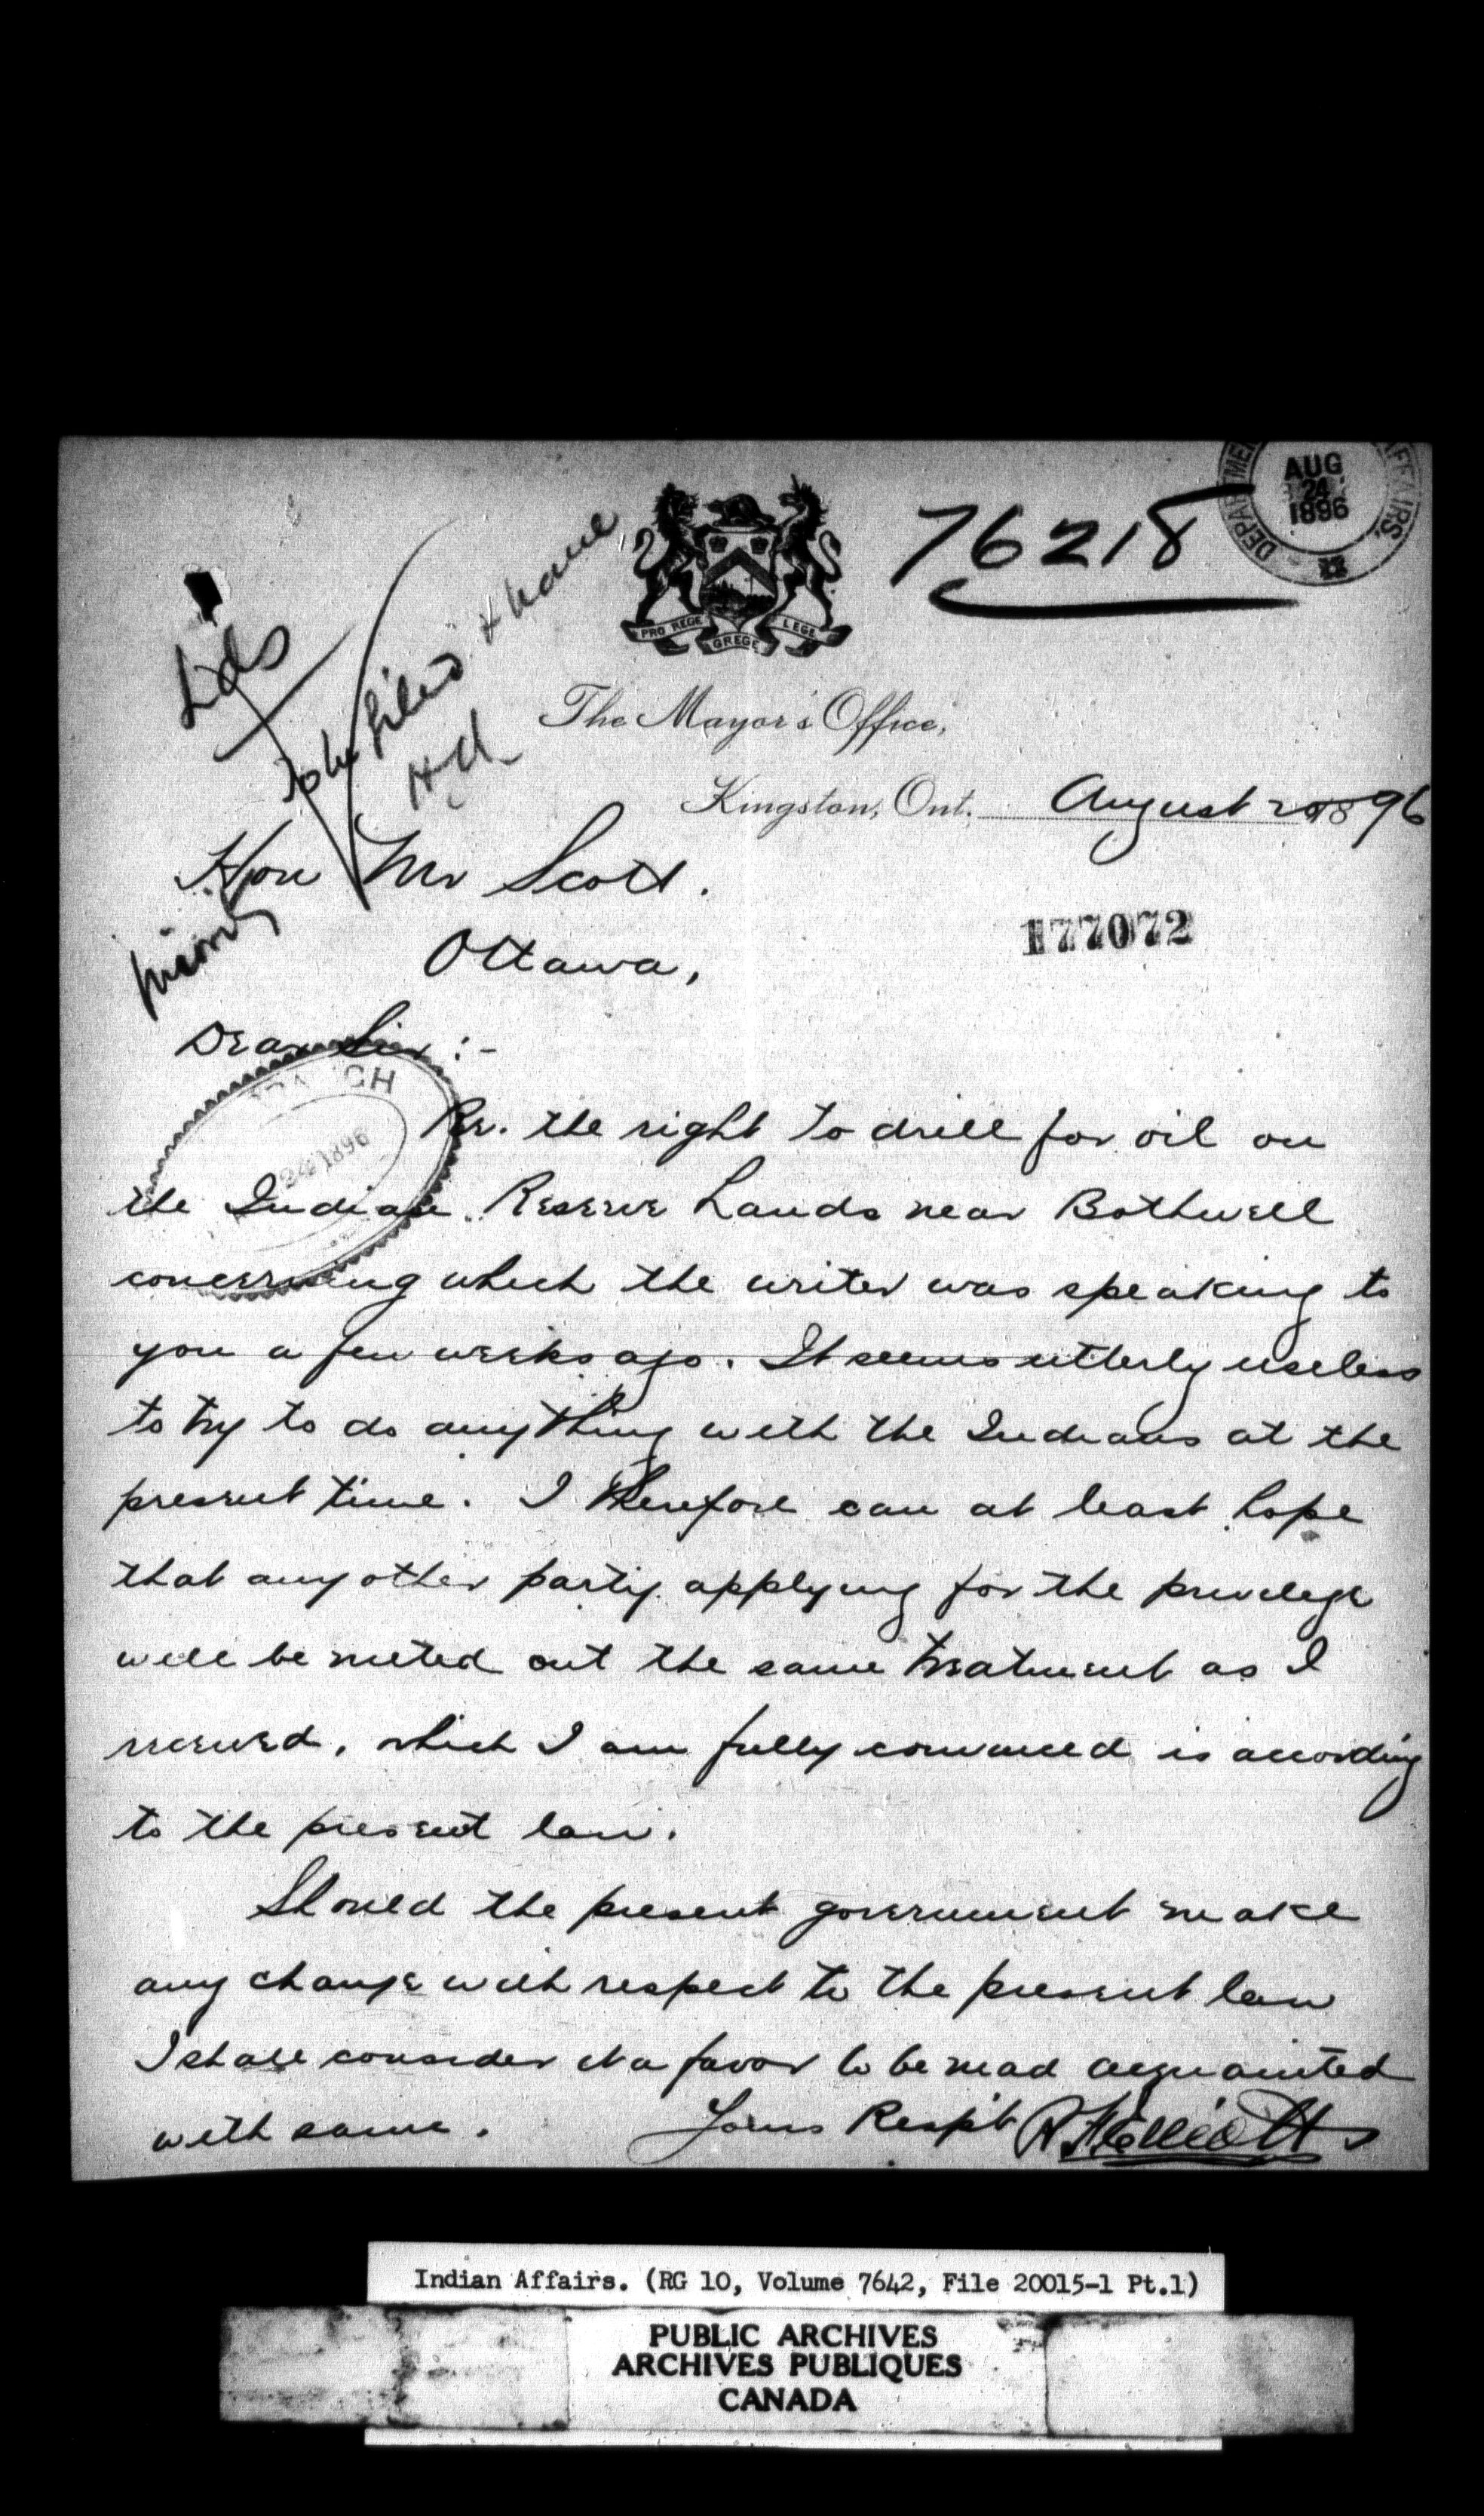 DEPARTME AFFAIRS.
AUG
24
1896
76218
PRO REGE GREGE LEGE
The Mayor's Office,
Kingston, Ont. August 20 1896
Hon Mr Scott.
Ottawa,
177072
Dear Sir :-
CH
24 1896
Re. the right to drill for oil on
the Indian Reserve Lands near Bothwell
concerning which the writer was speaking to
you a few weeks ago. It seems utterly useless
to try to do anything with the Indians at the
present time. I therefore can at least hope
that any other party applying for the privilege
will be meted out the same treatment as I
received, which I am fully convinced is according
to the present law.
Should the present government make
any change with respect to the present law
I shall consider it a favor to be mad acquainted
with same. Yours Respt R F Elliott
Indian Affairs. (RG 10, Volume 7642, File 20015-1 Pt.1)
PUBLIC ARCHIVES
ARCHIVES PUBLIQUES
CANADA